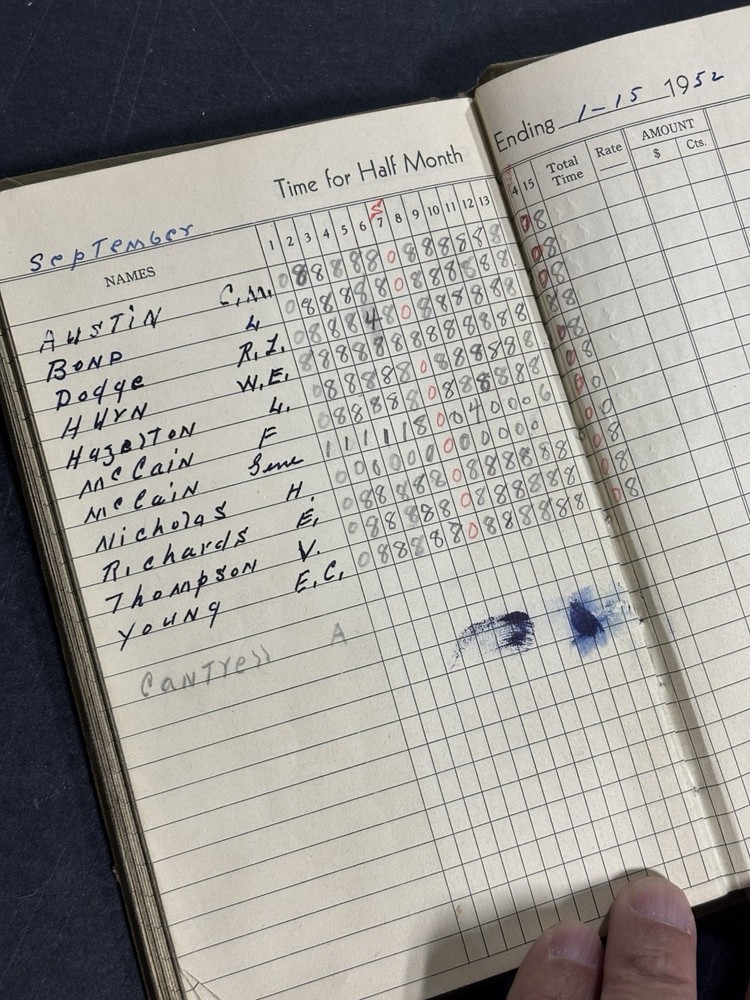 Ending 1-15 1952
Time for Half Month
September
NAMES 1 2 3 4 5 6 7 8 9 10 11 12 13 4 15 Total Time Rate AMOUNT $ Cts.
S
Austin C.M. 0 8 8 8 8 8 0 8 8 8 8 8 8 0 8
Bond L 0 8 8 8 8 8 0 8 8 8 8 8 8 0 8
Dodge R.L. 0 8 8 8 4 8 0 8 8 8 8 8 8 0 8
Hurn W.E. 8 8 8 8 8 8 8 8 8 8 8 8 8 8 8
Hazelton L. 0 8 8 8 8 8 0 8 8 8 8 8 8 0 8
McCain F 0 8 8 8 8 8 0 8 8 8 8 8 8 0 8
McCain Gene 1 1 1 1 1 8 0 0 4 0 0 0 6 0 0
Nicholas H. 0 0 0 0 0 0 0 0 0 0 0 0 0 0
Richards E. 0 8 8 8 8 8 0 8 8 8 8 8 8 0 8
Thompson V. 0 8 8 8 8 8 0 8 8 8 8 8 8 0 8
Young E.C. 0 8 8 8 8 8 0 8 8 8 8 8 8 0 8
Cantrell A